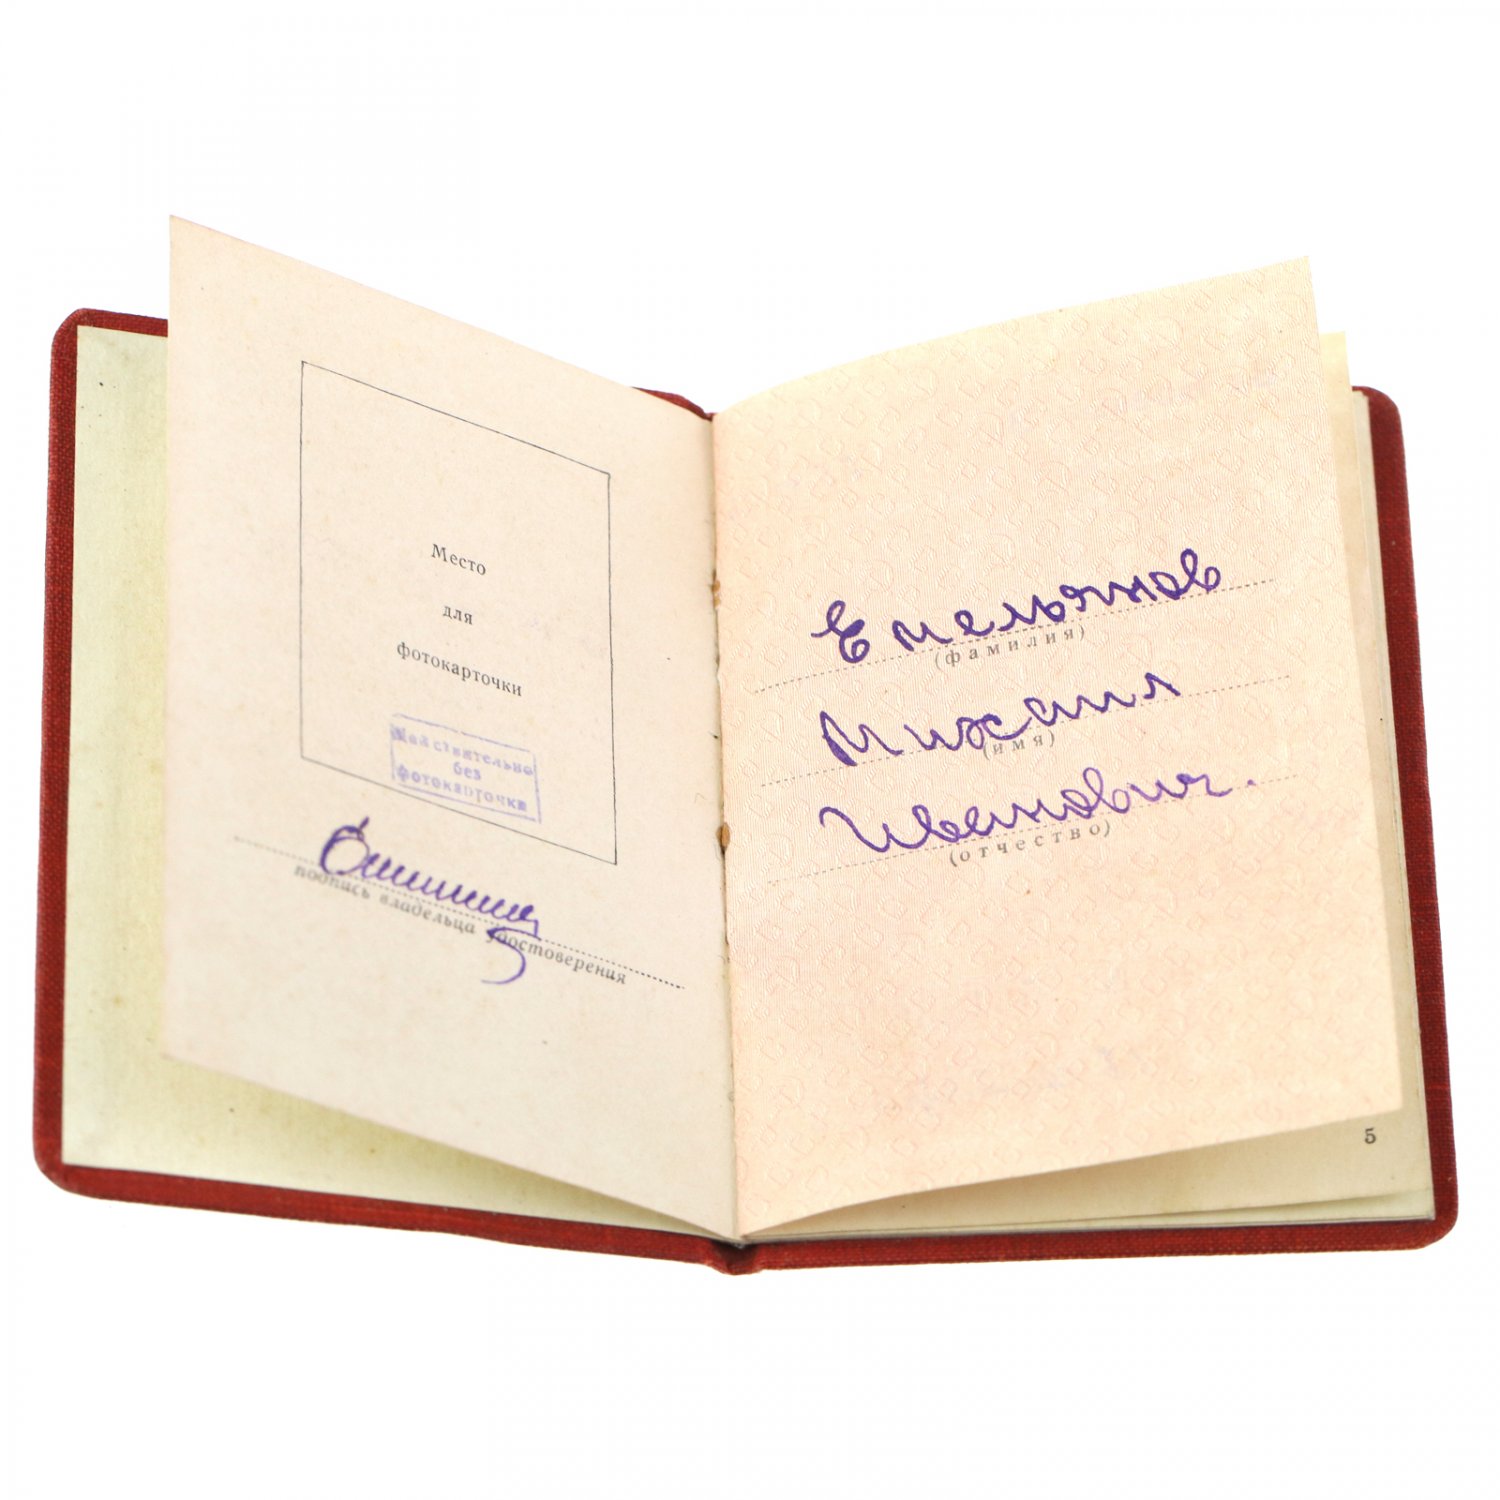 Место
для
фотокарточки
Действительно
без
фотокарточки
подпись владельца удостоверения
Емельянов
(фамилия)
Михаил
(имя)
Иванович.
(отчество)
5